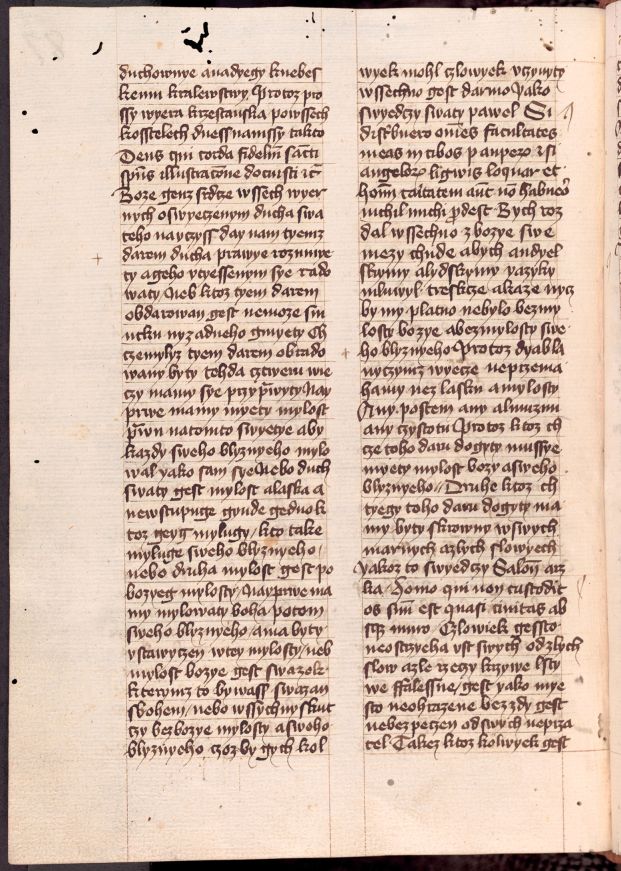 duchownye a nadyegy knebes
kemu kralewstwy Protoz pro
ssy wyera krzestanska powssech
kosstelech dnessnamssy takto
Deus qui corda fidelium sancti
spūs illustracione docuisti etc
Boze genz srdcze wssech wyer
nych oswyeczenym ducha swa
teho nayczyss day nam tyemz
darem ducha prawye rozumye
ty ageho vtyessenym sye rado
waty Neb ktoz tyem darem
obdarowan gest nemoze smu
utku nyzadneho gmyety Ch
czemylyz tyem darem obrado
wany byty tehda cztyeru wie
czy mamy sye przyprwyty Nay
prwe mamy myety mylost
prwu natomto swyetye aby
kazdy sweho blyznyeho mylo
wal yako sam sye Nebo duch
swaty gest mylost alaska a
newstupuge gynde gedno k
toz geyg mylugy / kto take
myluge sweho blyznyeho /
nebo druha mylost gest po
bozyeg mylosty Nayprwe ma
my mylowaty boha / potom
sweho blyznyeho / ama byty
vstawyczen wtey mylosty / neb
mylost bozye gest swazok
kterymz to bywass swazan
sbohem / nebo wssychny skut
czy bez bozye mylosty a sweho
blyznyeho czoz by gych kol
wyek mohl czlowyek vczynyty
wssechno gest darmo yako
swyedczy swaty pawel Si
distribuero omnes facultates
meas in cibos pauperum et si
angelorum ligwis loquar et
hominum caritatem autem non habuero
nichil michi prodest Bych roz
dal wssechno zbozye swe
mezy chude abych andyel
skymy alydskymy yazyky
mluwyl treskcze akaze nycz
by my platno nebylo bezmy
losty bozye abezmylosty swe
ho blyznyeho Protoz dyabla
nyczymz wyecze neprzema
hamy nez lasku amylosty
Any postem any almuznu
any czystotu Protoz ktoz ch
cze toho daru dogyty mussye
myety mylost bozy asweho
blyznyeho // Druhe ktoz ch
tyegy toho daru dogyty ma
my byty skrowny wswych
marnych azlych slowyech
yakoz to swyedczy Salomon arz
ka Homo qui non custodit
os suum est quasi ciuitas ab
sque muro Czlowiek gessto
neostrzyeha vst swych odzlych
slow azle rzeczy krzywe lsty
we ffalessne / gest yako mye
sto neohrazene bezzdy gest
nebezpeczen odswych neprza
tel Takez ktoz kolwyek gest